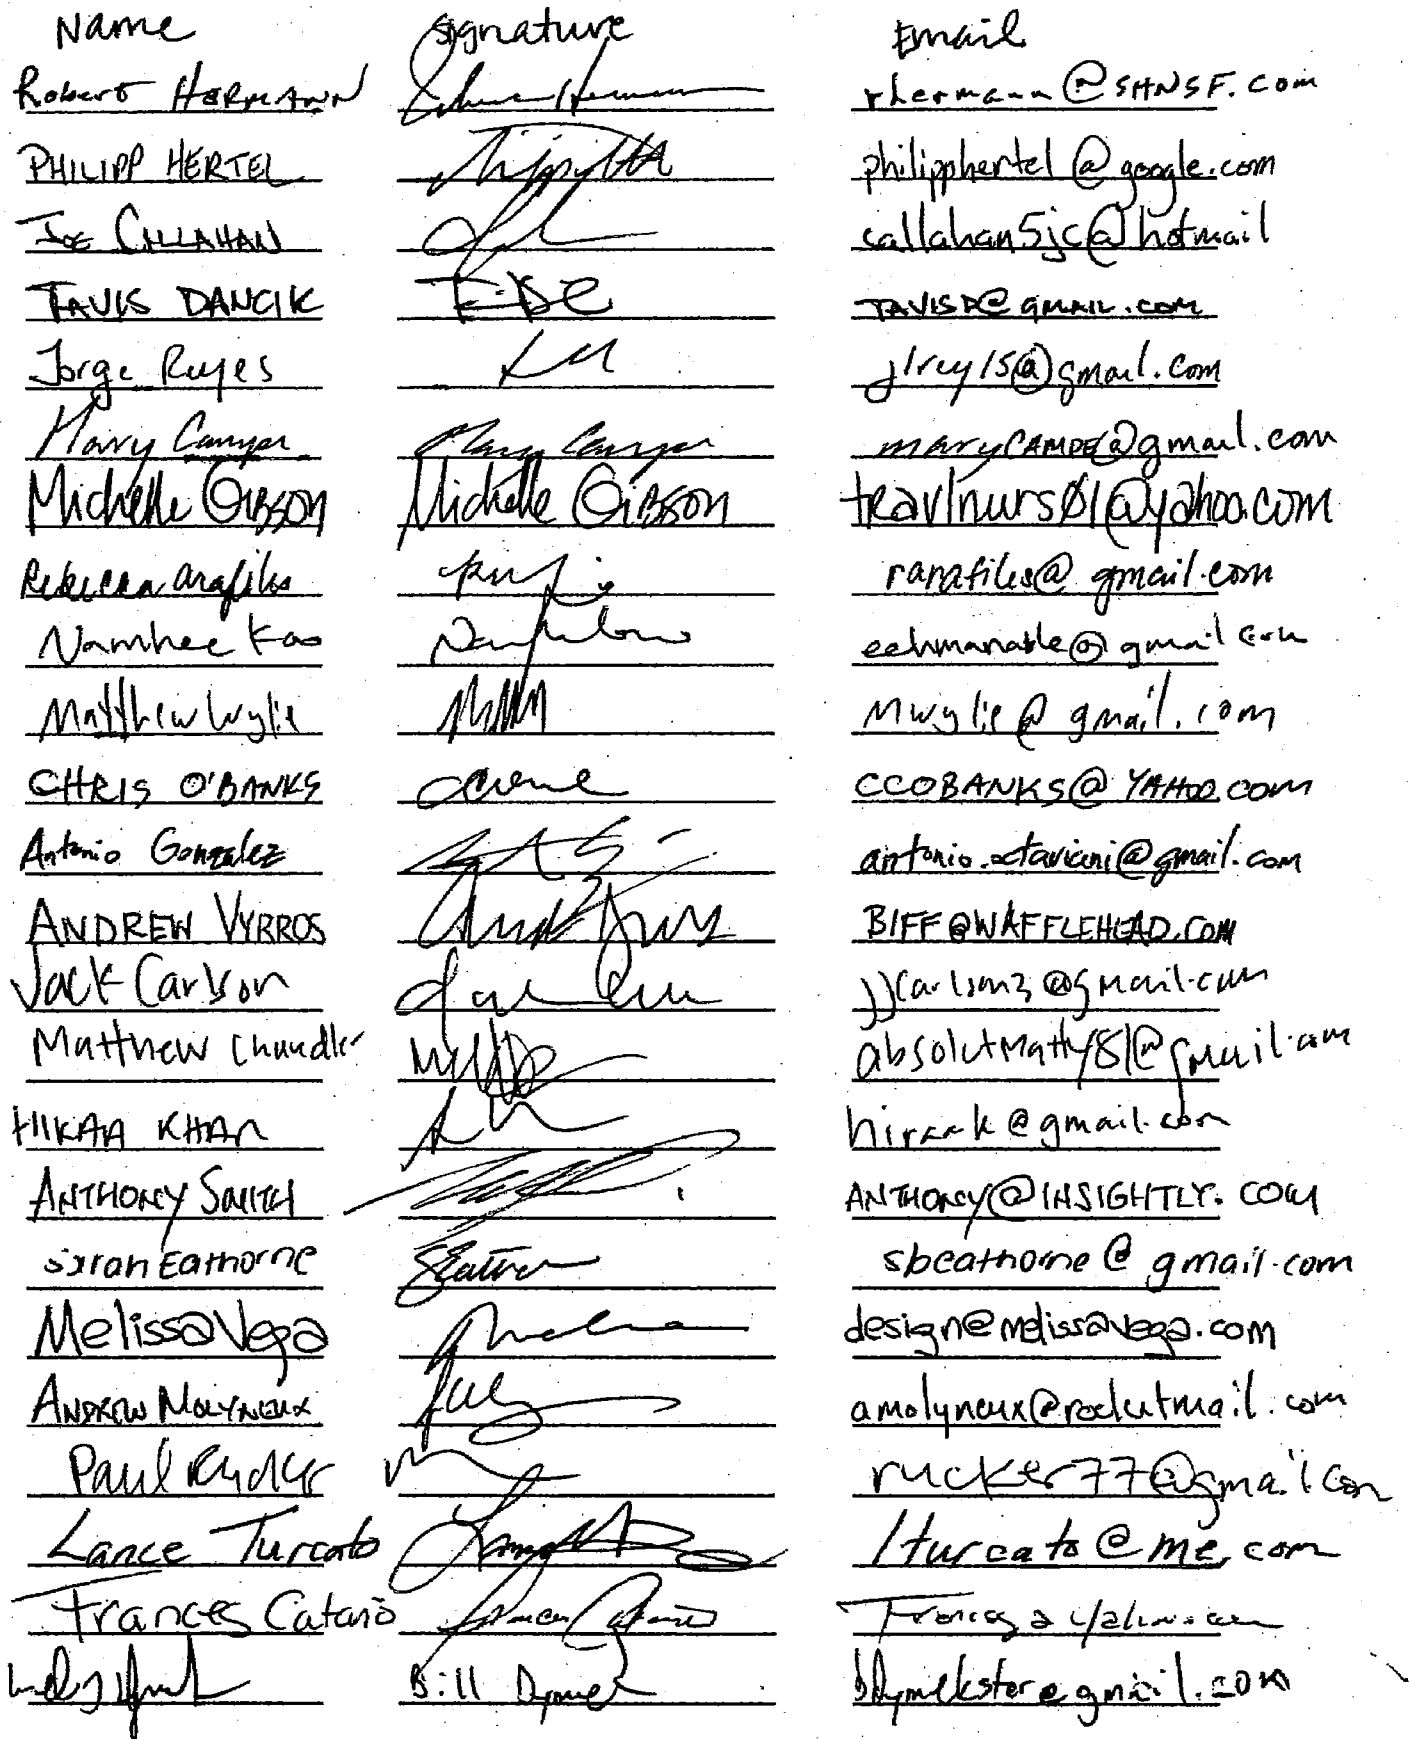 Name Signature Email
Robert HERMANN rhermann@SHNSF.com
PHILIPP HERTEL philipphertel@google.com
JOE CALLAHAN callahan5jc@hotmail
TAVIS DANCIK TAVISD@GMAIL.COM
Jorge Reyes jlrey15@gmail.com
Mary Camper
Michelle GIBSON Michelle GIBSON travlnurs01@yahoo.com
Rebecca Arafiles rarafiles@gmail.com
Namhee Koo
Matthew Wylie Mwylie@gmail.com
CHRIS O'BANKS CCOBANKS@YAHOO.COM
Antonio Gonzalez antonio.octaviani@gmail.com
ANDREW VYRROS Andrew Vyrros BIFF@WAFFLEHEAD.COM
Jack Carlson jjcarlson3@gmail.com
Matthew Chandler absolutmatty81@gmail.com
KHAN hiraak@gmail.com
ANTHONY SMITH ANTHONY@INSIGHTLY.COM
Sarah Eathorne sbeathorne@gmail.com
Melissa Vega design@melissavega.com
ANDREW MOLYNEUX amolyneux@rocketmail.com
Paul rucker77@gmail.com
Lance Turcato lturcato@me.com
Frances Cataño Frances Cataño
Bill